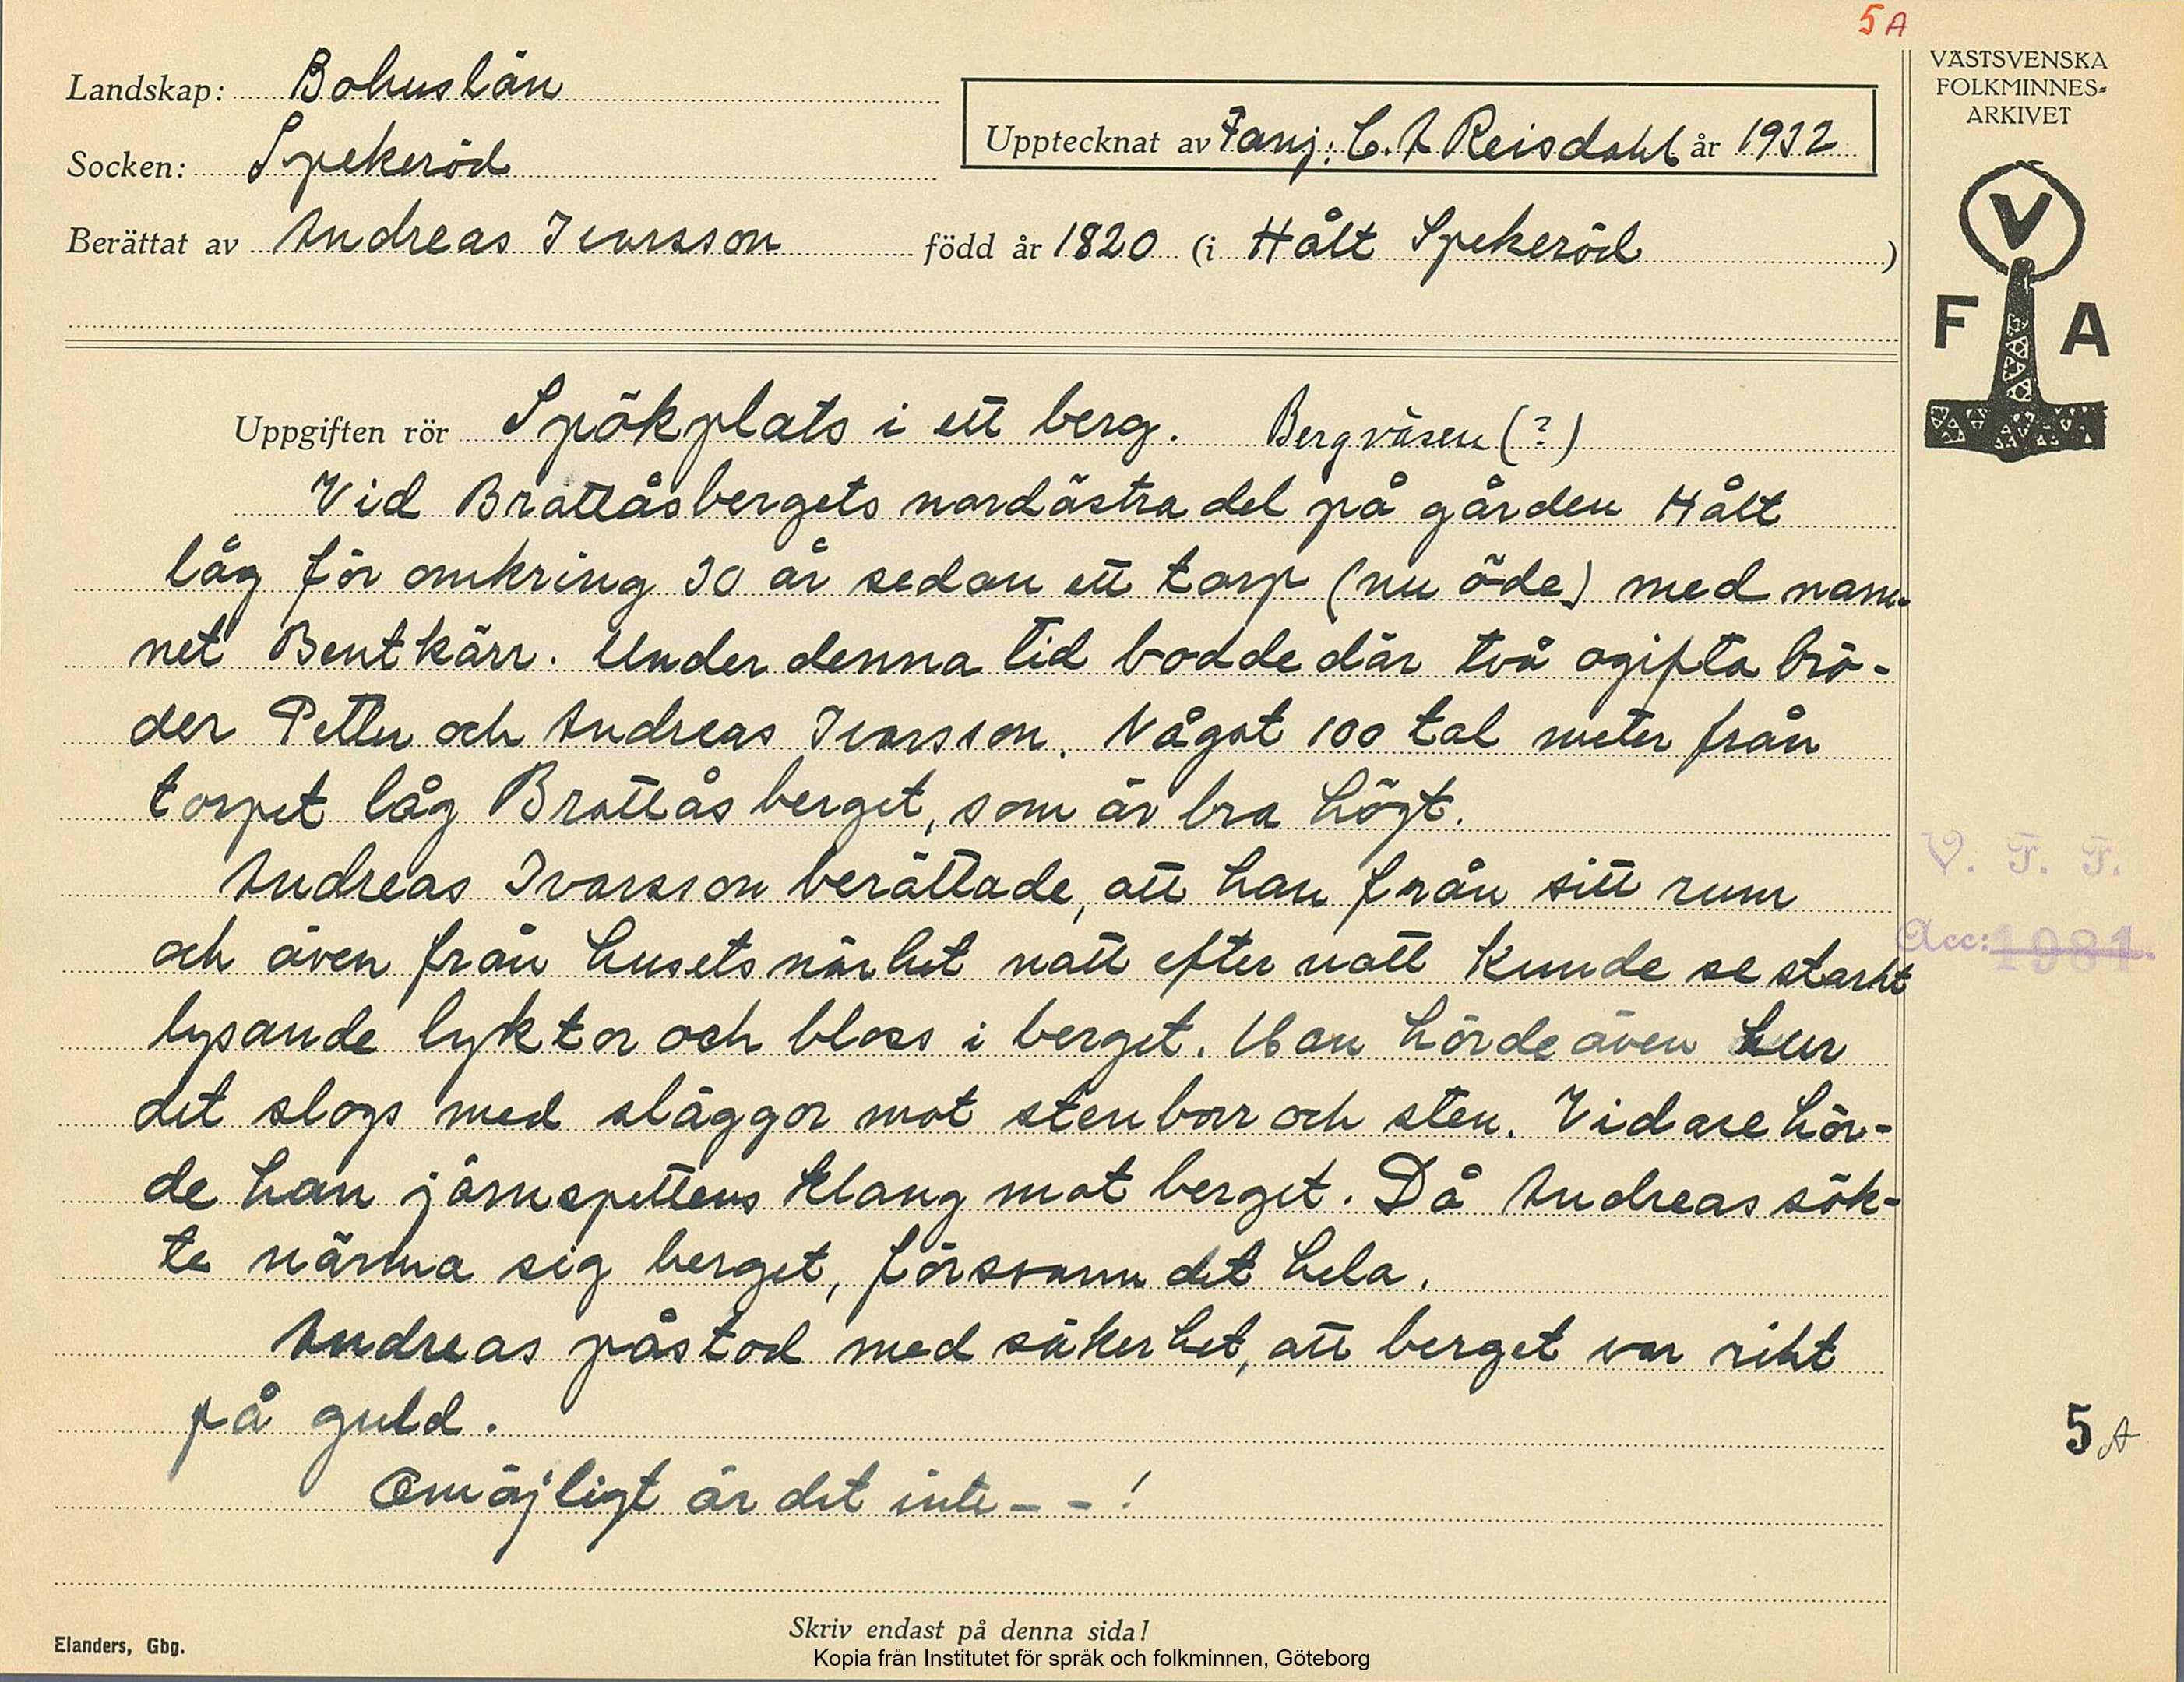 5 A
Landskap: Bohuslän
Socken: Spekeröd
Upptecknat av Fanj: C. A Reisdahl år 1932
Berättat av Andreas Ivarsson född år 1820 (i Hält Spekeröd )
VÄSTSVENSKA
FOLKMINNES-
ARKIVET
V
F A
Uppgiften rör Spökplats i ett berg. Bergväsen (?)
Vid Brattåsbergets nordöstra del på gården Hålt
låg för omkring 30 år sedan ett torp (nu öde) med nam-
net Bentkärr. Under denna tid bodde där två ogifta brö-
der Petter och Andreas Ivarsson. Något 100 tal meter från
torpet låg Brattåsberget, som är bra högt.
Andreas Ivarsson berättade, att han från sitt rum
och även från husets närhet natt efter natt kunde se starkt
lysande lyktor och bloss i berget. Han hörde även hur
det slogs med släggor mot stenborr och sten. Vidare hör-
de han järnspettens klang mot berget. Då Andreas sök-
te närma sig berget, försvann det hela.
Andreas påstod med säkerhet, att berget var rikt
på guld.
Omöjligt är det inte - - !
V. F. F.
Acc: 1981.
5 A
Skriv endast på denna sida!
Elanders, Gbg.
Kopia från Institutet för språk och folkminnen, Göteborg